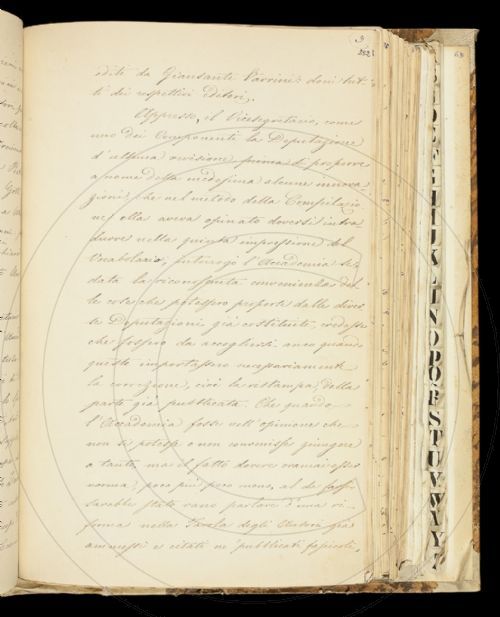 3
editi da Giansante Varrini: doni tut-
ti dei rispettivi Editori.
Appresso, il Vicesegretario, come
uno dei Componenti la Deputazione
d'ultima revisione prima di proporre
a nome della medesima alcune innova-
zioni che nel metodo della Compilazio-
ne ella aveva opinato doversi intro-
durre nella quinta impressione del
Vocabolario, interrogò l'Accademia se,
data la riconosciuta convenienza del-
le cose che potessero proporsi dalle diver-
se Deputazioni già costituite, credesse
che fossero da accogliersi anco quando
queste importassero necessariamente
la correzione, cioè la ristampa, della
parte già pubblicata. Che quando
l'Accademia fosse nell'opinione che
non si potesse o non convenisse giungere
a tanto, ma il fatto dovere oramai esser
norma, poco più poco meno, al da farsi,
sarebbe stato vano parlare d'una ri-
forma nella Tavola degli Autori già
ammessi e citati ne' pubblicati fascicoli,